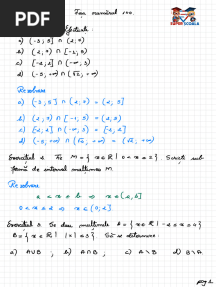 PDF
Fișă numărul
SUPER ȘCOALA
Efectuați:
a) (-3; 5] ∩ (2; 7)
b) (2; 7) ∩ [-1; 3)
d) (-5; +∞) ∩ (√2; +∞)
Rezolvare
a) (-3; 5] ∩ (2; 7) = (2; 5]
b) (2; 7) ∩ [-1; 3) = (2; 3)
d) (-5; +∞) ∩ (√2; +∞) = (√2; +∞)
Exercițiul 2 Fie M = { x ∈ R | 0 < x ≤ 2 }. Scrieți sub
formă de interval mulțimea M.
Rezolvare
0 < x ≤ 2 ⇒ x ∈ (0; 2]
Exercițiul 3 Se dau mulțimile A = { x ∈ R |
B = { x ∈ R | |x| ≤ 3 } Să se determine:
a) A∪B ; b) A∩B ; c) A\B d) B\A
pag